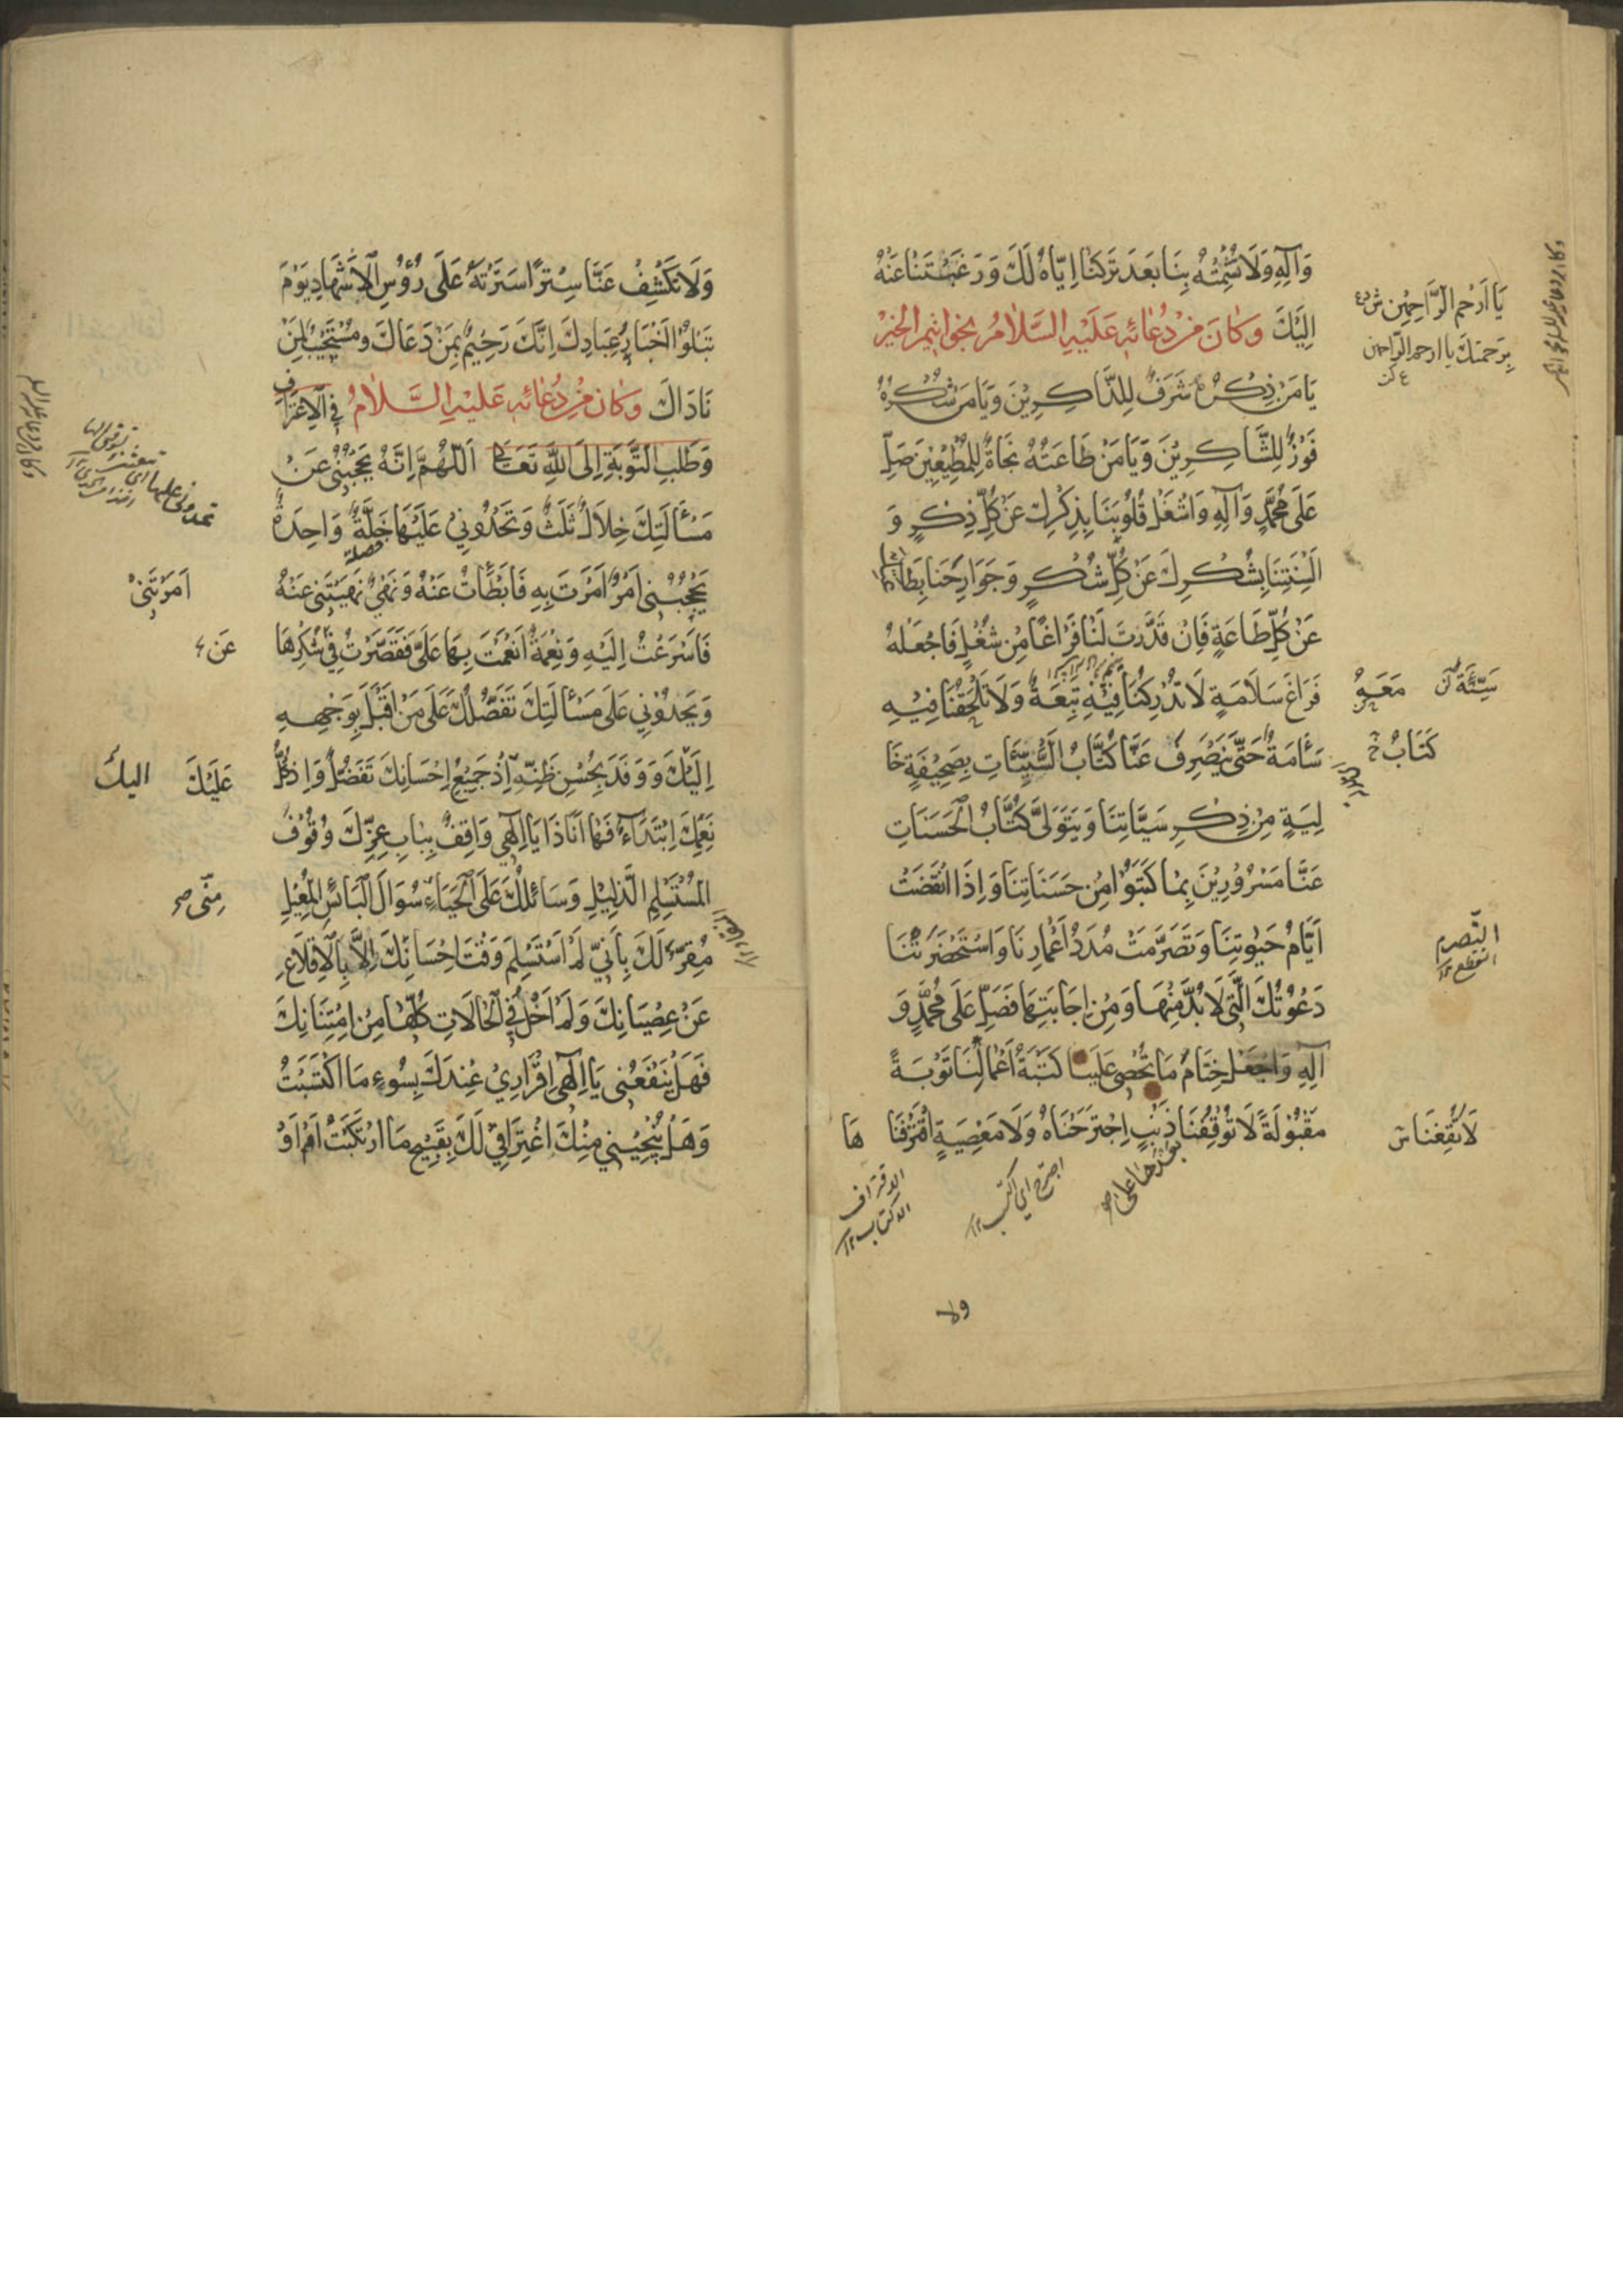 وَآلِهِ وَلَا تُشْمِتْهُ بِنَا بَعْدَ تَرْكِنَا اِيَّاهُ لَكَ وَرَغْبَتِنَا عَنْهُ
اِلَيْكَ وَكَانَ مِنْ دُعَائِهِ عَلَيْهِ السَّلَامُ بِخَوَاتِيمِ الْخَيْرِ
يَا مَنْ ذِكْرُهُ شَرَفٌ لِلذَّاكِرِيْنَ وَيَا مَنْ شُكْرُهُ
فَوْزٌ لِلشَّاكِرِيْنَ وَيَا مَنْ طَاعَتُهُ نَجَاةٌ لِلْمُطِيْعِيْنَ صَلِّ
عَلَى مُحَمَّدٍ وَآلِهِ وَاشْغَلْ قُلُوْبَنَا بِذِكْرِكَ عَنْ كُلِّ ذِكْرٍ وَ
اَلْسِنَتِنَا بِشُكْرِكَ عَنْ كُلِّ شُكْرٍ وَجَوَارِحَنَا بِطَاعَتِكَ
عَنْ كُلِّ طَاعَةٍ فَاِنْ قَدَّرْتَ لَنَا فَرَاغًا مِنْ شُغْلٍ فَاجْعَلْهُ
فَرَاغَ سَلَامَةٍ لَا تُدْرِكُنَا فِيْهِ تَبِعَةٌ وَلَا تَلْحَقُنَا فِيْهِ
سَأَمَةٌ حَتَّى يَنْصَرِفَ عَنَّا كُتَّابُ السَّيِّئَاتِ بِصَحِيْفَةٍ خَا
لِيَةٍ مِنْ ذِكْرِ سَيِّئَاتِنَا وَيَتَوَلَّى كُتَّابُ الْحَسَنَاتِ
عَنَّا مَسْرُوْرِيْنَ بِمَا كَتَبُوْا مِنْ حَسَنَاتِنَا وَاِذَا انْقَضَتْ
اَيَّامُ حَيٰوتِنَا وَتَصَرَّمَتْ مُدَدُ اَعْمَارِنَا وَاسْتَحْضَرَتْنَا
دَعْوَتُكَ الَّتِى لَا بُدَّ مِنْهَا وَمِنْ اِجَابَتِهَا فَصَلِّ عَلَى مُحَمَّدٍ وَ
آلِهِ وَاجْعَلْ خِتَامَ مَا تُحْصِى عَلَيْنَا كَتَبَةُ اَعْمَالِنَا تَوْبَةً
مَقْبُوْلَةً لَا تُوْقِفُنَا ذَنْبٍ اِجْتَرَحْنَاهُ وَلَا مَعْصِيَةٍ اقْتَرَفْنَا هَا
يَا اَرْحَمَ الرَّاحِمِيْنَ
بِرَحْمَتِكَ يا ارحم الرّاحمين
سَيِّئَةٌ
مَعَهُ
كِتَابُ
التّصرم
انقطع ١٢
لَا تُقِفْنَا ش
الاقتراف
الاكتساب ١٢
اجترح اي اكتسب ١٢
ولا
وَلَا تَكْشِفْ عَنَّا سِتْرًا سَتَرْتَهُ عَلَى رُؤُسِ الْاَشْهَادِ يَوْمَ
تَبْلُوْ اَخْبَارَ عِبَادِكَ اِنَّكَ رَحِيْمٌ بِمَنْ دَعَاكَ وَمُسْتَجِيْبٌ لِمَنْ
نَادَاكَ وَكَانَ مِنْ دُعَائِهِ عَلَيْهِ السَّلَامُ فِى الْاِعْتِرَافِ
وَطَلَبِ التَّوْبَةِ اِلَى اللهِ تَعَالَى اَللّٰهُمَّ اِنَّهُ يَحْجُبُنِىْ عَنْ
مَسْأَلَتِكَ خِلَالٌ ثَلَثٌ وَتَحْدُوْنِى عَلَيْهَا خَلَّةٌ وَاحِدَةٌ
يَحْجُبُنِى اَمْرٌ اَمَرْتَ بِهِ فَاَبْطَأْتُ عَنْهُ وَنَهْىٌ نَهَيْتَنِى عَنْهُ
فَاَسْرَعْتُ اِلَيْهِ وَنِعْمَةٌ اَنْعَمْتَ بِهَا عَلَىَّ فَقَصَّرْتُ فِى شُكْرِهَا
وَيَحْدُوْنِى عَلَى مَسْأَلَتِكَ تَفَضُّلُكَ عَلَى مَنْ اَقْبَلَ بِوَجْهِهِ
اِلَيْكَ وَوَفَدَ بِحُسْنِ ظَنِّهِ اِذْ جَمِيْعُ اِحْسَانِكَ تَفَضُّلٌ وَاِذْ كُلُّ
نِعَمِكَ اِبْتِدَاءٌ فَهَا اَنَا ذَا يَا اِلٰهِى وَاقِفٌ بِبَابِ عِزِّكَ وُقُوْفَ
الْمُسْتَسْلِمِ الذَّلِيْلِ وَسَائِلُكَ عَلَى الْحَيَاءِ سُؤَالَ الْبَائِسِ الْمُعِيْلِ
مُقِرٌّ لَكَ بِاَنِّى لَمْ اَسْتَسْلِمْ وَقْتَ اِحْسَانِكَ اِلَّا بِالْاِقْلَاعِ
عَنْ عِصْيَانِكَ وَلَمْ اَخْلُ فِى الْحَالَاتِ كُلِّهَا مِنِ امْتِنَانِكَ
فَهَلْ يَنْفَعُنِى يَا اِلٰهِى اِقْرَارِىْ عِنْدَكَ بِسُوْءِ مَا اكْتَسَبْتُ
وَهَلْ يُنْجِيْنِى مِنْكَ اعْتِرَافِىْ لَكَ بِقَبِيْحِ مَا ارْتَكَبْتُ اَمْ اَوْ
اَمَرْتَنِىْ
عَنْ
عَلَيْكَ
اليك
مِنِّى